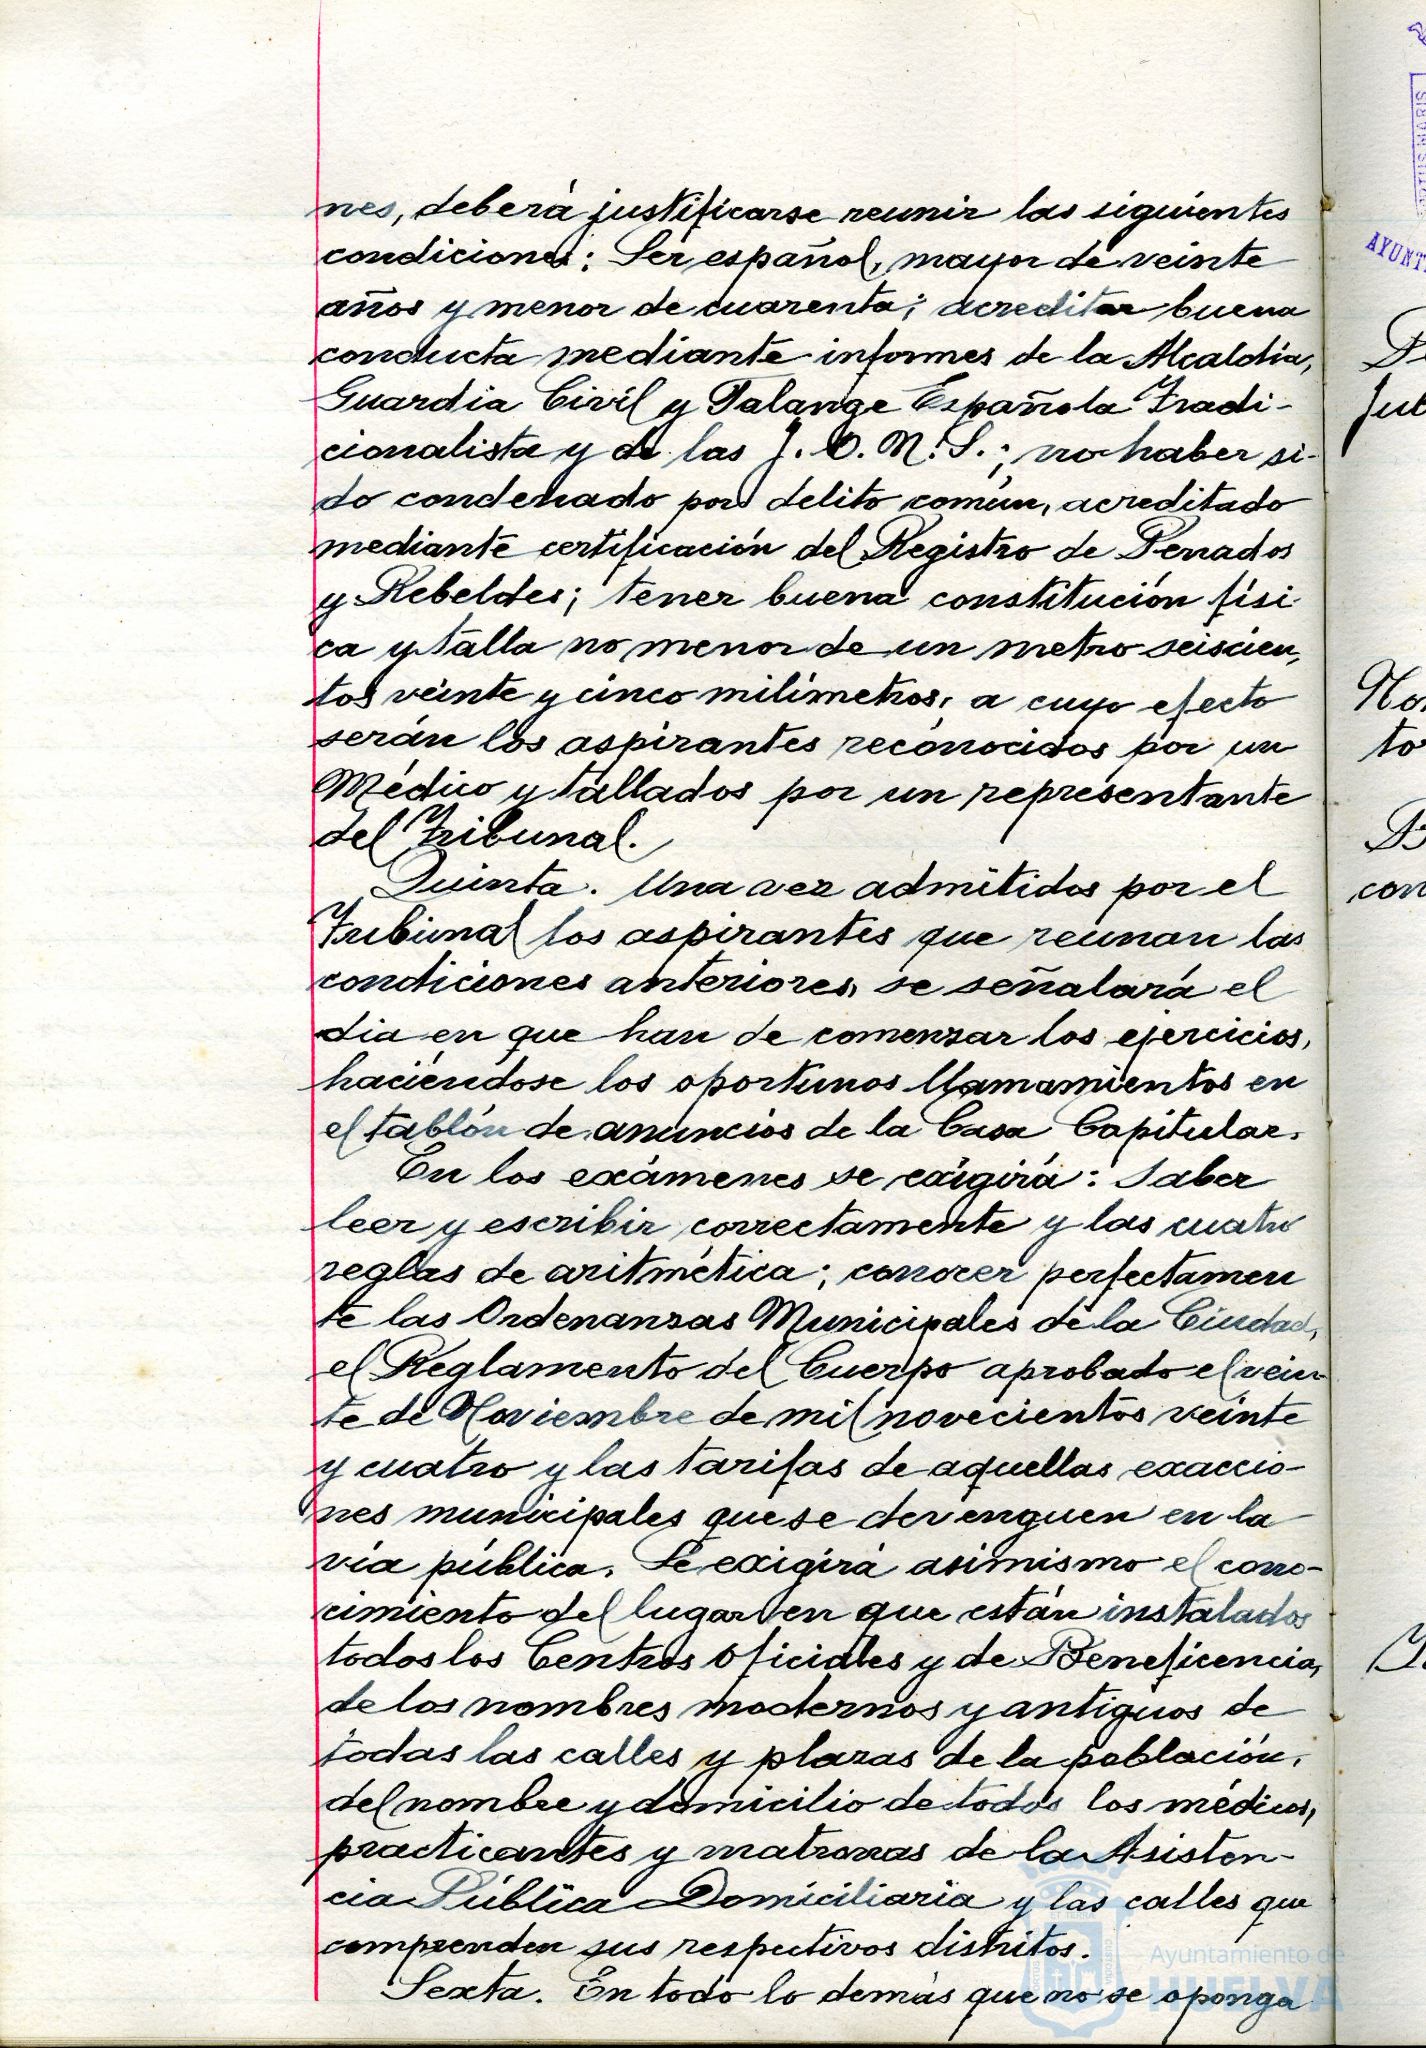 nes, deberá justificarse reunir las siguientes
condiciones: Ser español, mayor de veinte
años y menor de cuarenta; acreditar buena
conducta mediante informes de la Alcaldía,
Guardia Civil y Falange Española Tradi-
cionalista y de las J. O. N. S.; no haber si-
do condenado por delito común, acreditado
mediante certificación del Registro de Penados
y Rebeldes; tener buena constitución físi-
ca y talla no menor de un metro seiscien-
tos veinte y cinco milímetros, a cuyo efecto
serán los aspirantes reconocidos por un
Médico y tallados por un representante
del Tribunal.
Quinta. Una vez admitidos por el
Tribunal los aspirantes que reunan las
condiciones anteriores, se señalará el
dia en que han de comenzar los ejercicios,
haciéndose los oportunos llamamientos en
el tablón de anuncios de la Casa Capitular.
En los exámenes se exigirá: Saber
leer y escribir correctamente y las cuatro
reglas de aritmética; conocer perfectamen
te las Ordenanzas Municipales de la Ciudad,
el Reglamento del Cuerpo aprobado el vein-
te de Noviembre de mil novecientos veinte
y cuatro y las tarifas de aquellas exaccio-
nes municipales que se devenguen en la
vía pública. Se exigirá asimismo el cono-
cimiento del lugar en que están instalados
todos los Centros Oficiales y de Beneficencia,
de los nombres modernos y antiguos de
todas las calles y plazas de la población,
del nombre y domicilio de todos los médicos,
practicantes y matronas de la Asisten-
cia Pública Domiciliaria y las calles que
comprenden sus respectivos distritos.
Sexta. En todo lo demás que no se oponga
Ayuntamiento de
HUELVA
AYUNT